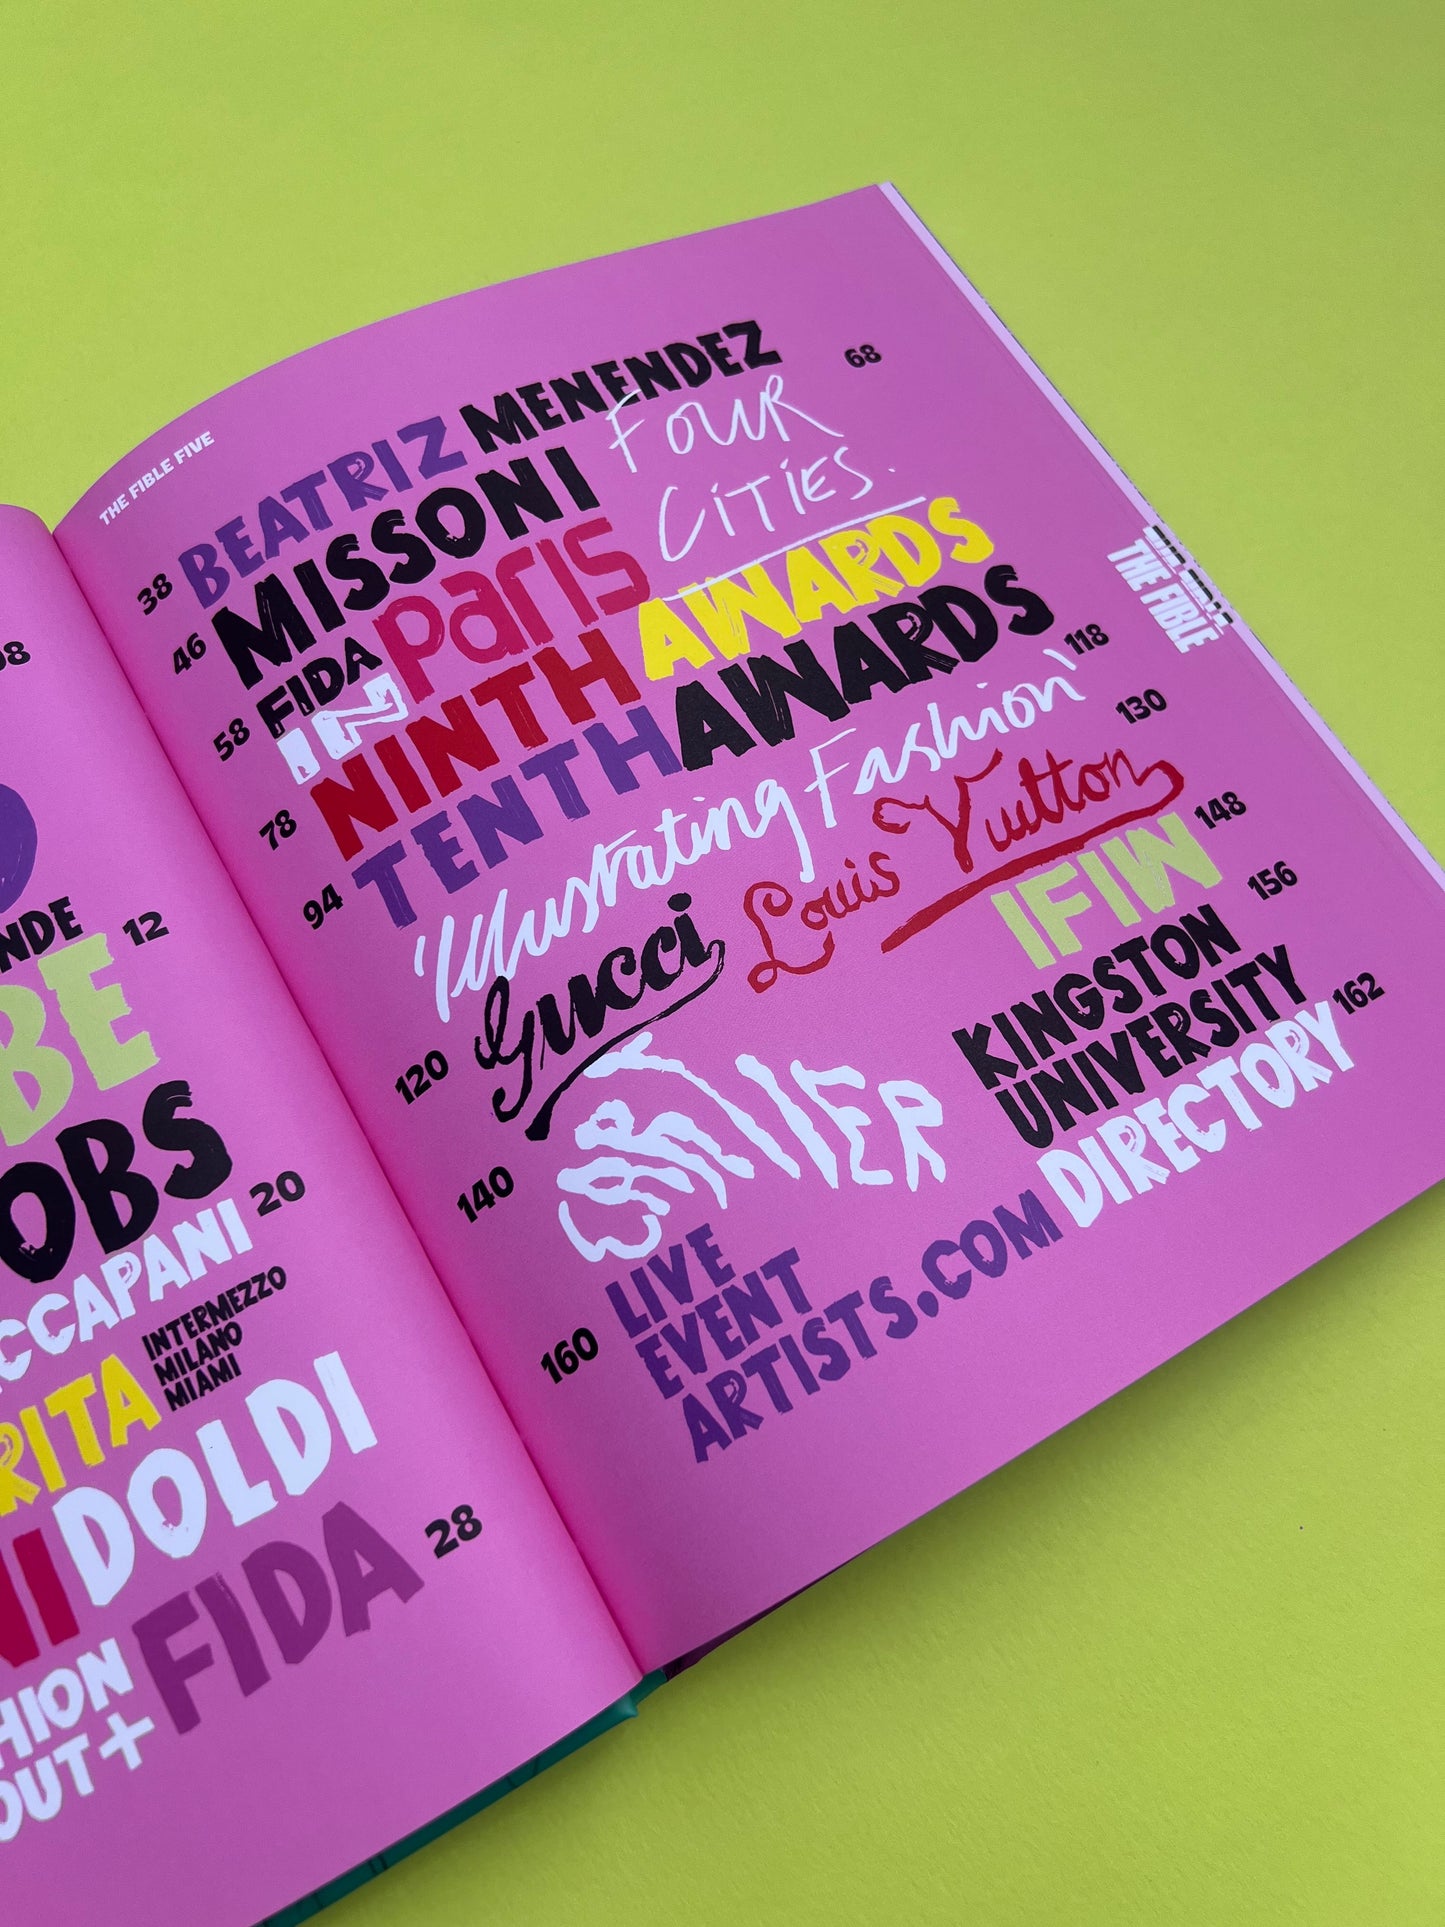 THE FIBLE FIVE
38 BEATRIZ MENENDEZ
46 MISSONI
FOUR 68
CITIES.
58 FIDA
IN PARIS
78 NINTH AWARDS
94 TENTH AWARDS
118
'Illustrating Fashion'
120 Gucci
Louis Vuitton 130
140 CARTIER
IFIW 148
KINGSTON 156
UNIVERSITY
DIRECTORY 162
160 LIVE
EVENT
ARTISTS.COM
THE FIBLE
12
20
INTERMEZZO
MILANO
MIAMI
DOLDI
FIDA 28